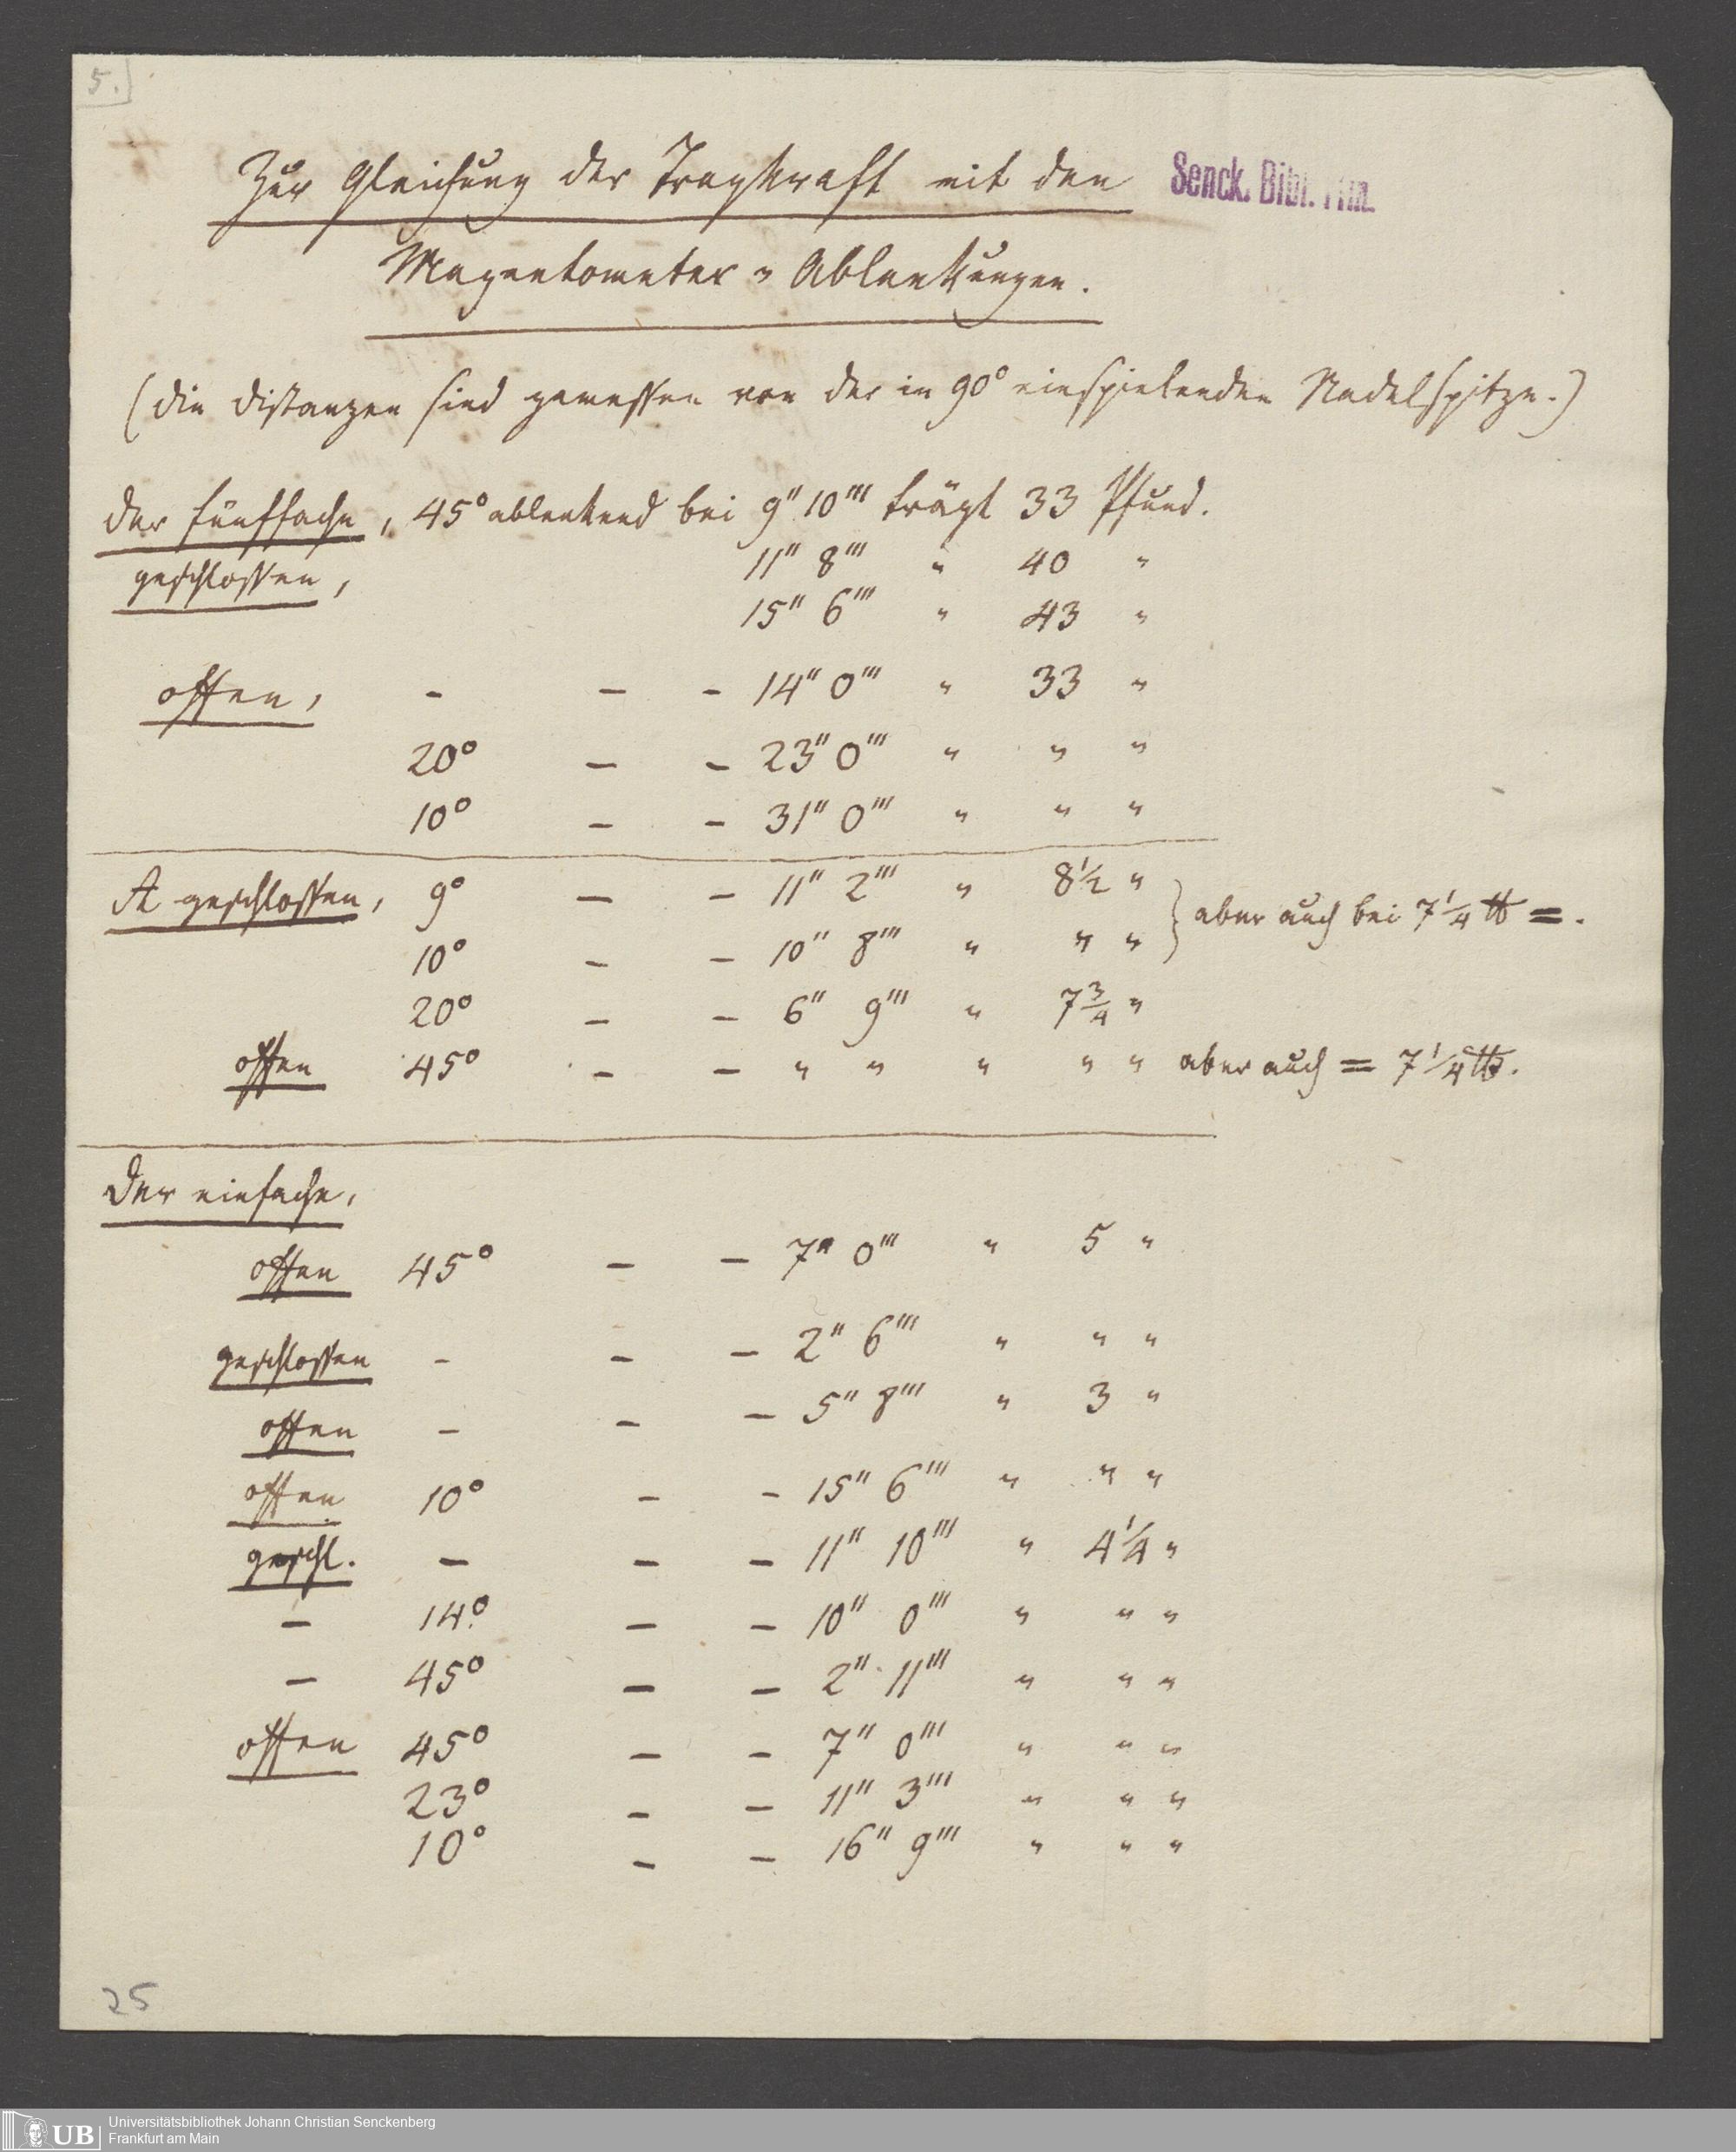 5.
Zur Gleichung der Tragkraft mit den
Senck. Bibl. Ffm.
Magnetometer = Ablenkungen.
(die Distanzen sind gemessen von der in 90° einspielenden Nadelspitze.)
der fünffache, 45° ablenkend bei 9" 10''' trägt 33 Pfund.
geschlossen, 11" 8''' " 40 "
15" 6''' " 43 "
offen, - - - 14" 0''' " 33 "
20° - - 23" 0''' " " "
10° - - 31" 0''' " " "
A geschlossen, 9° - - 11" 2''' " 8½ "
10° - - 10" 8''' " " " } aber auch bei 7¼ ℔ =.
20° - - 6" 9''' " 7¾ "
offen 45° - - " " " " " aber auch = 7¼ ℔.
Der einfache,
offen 45° - - 7" 0''' " 5 "
geschlossen - - - 2" 6''' " " "
offen - - - 5" 8''' " 3 "
offen 10° - - 15" 6''' " " "
geschl. - - - 11" 10''' " 4¼ "
- 14° - - 10" 0''' " " "
- 45° - - 2" 11''' " " "
offen 45° - - 7" 0''' " " "
23° - - 11" 3''' " " "
10° - - 16" 9''' " " "
25
UB
Universitätsbibliothek Johann Christian Senckenberg
Frankfurt am Main